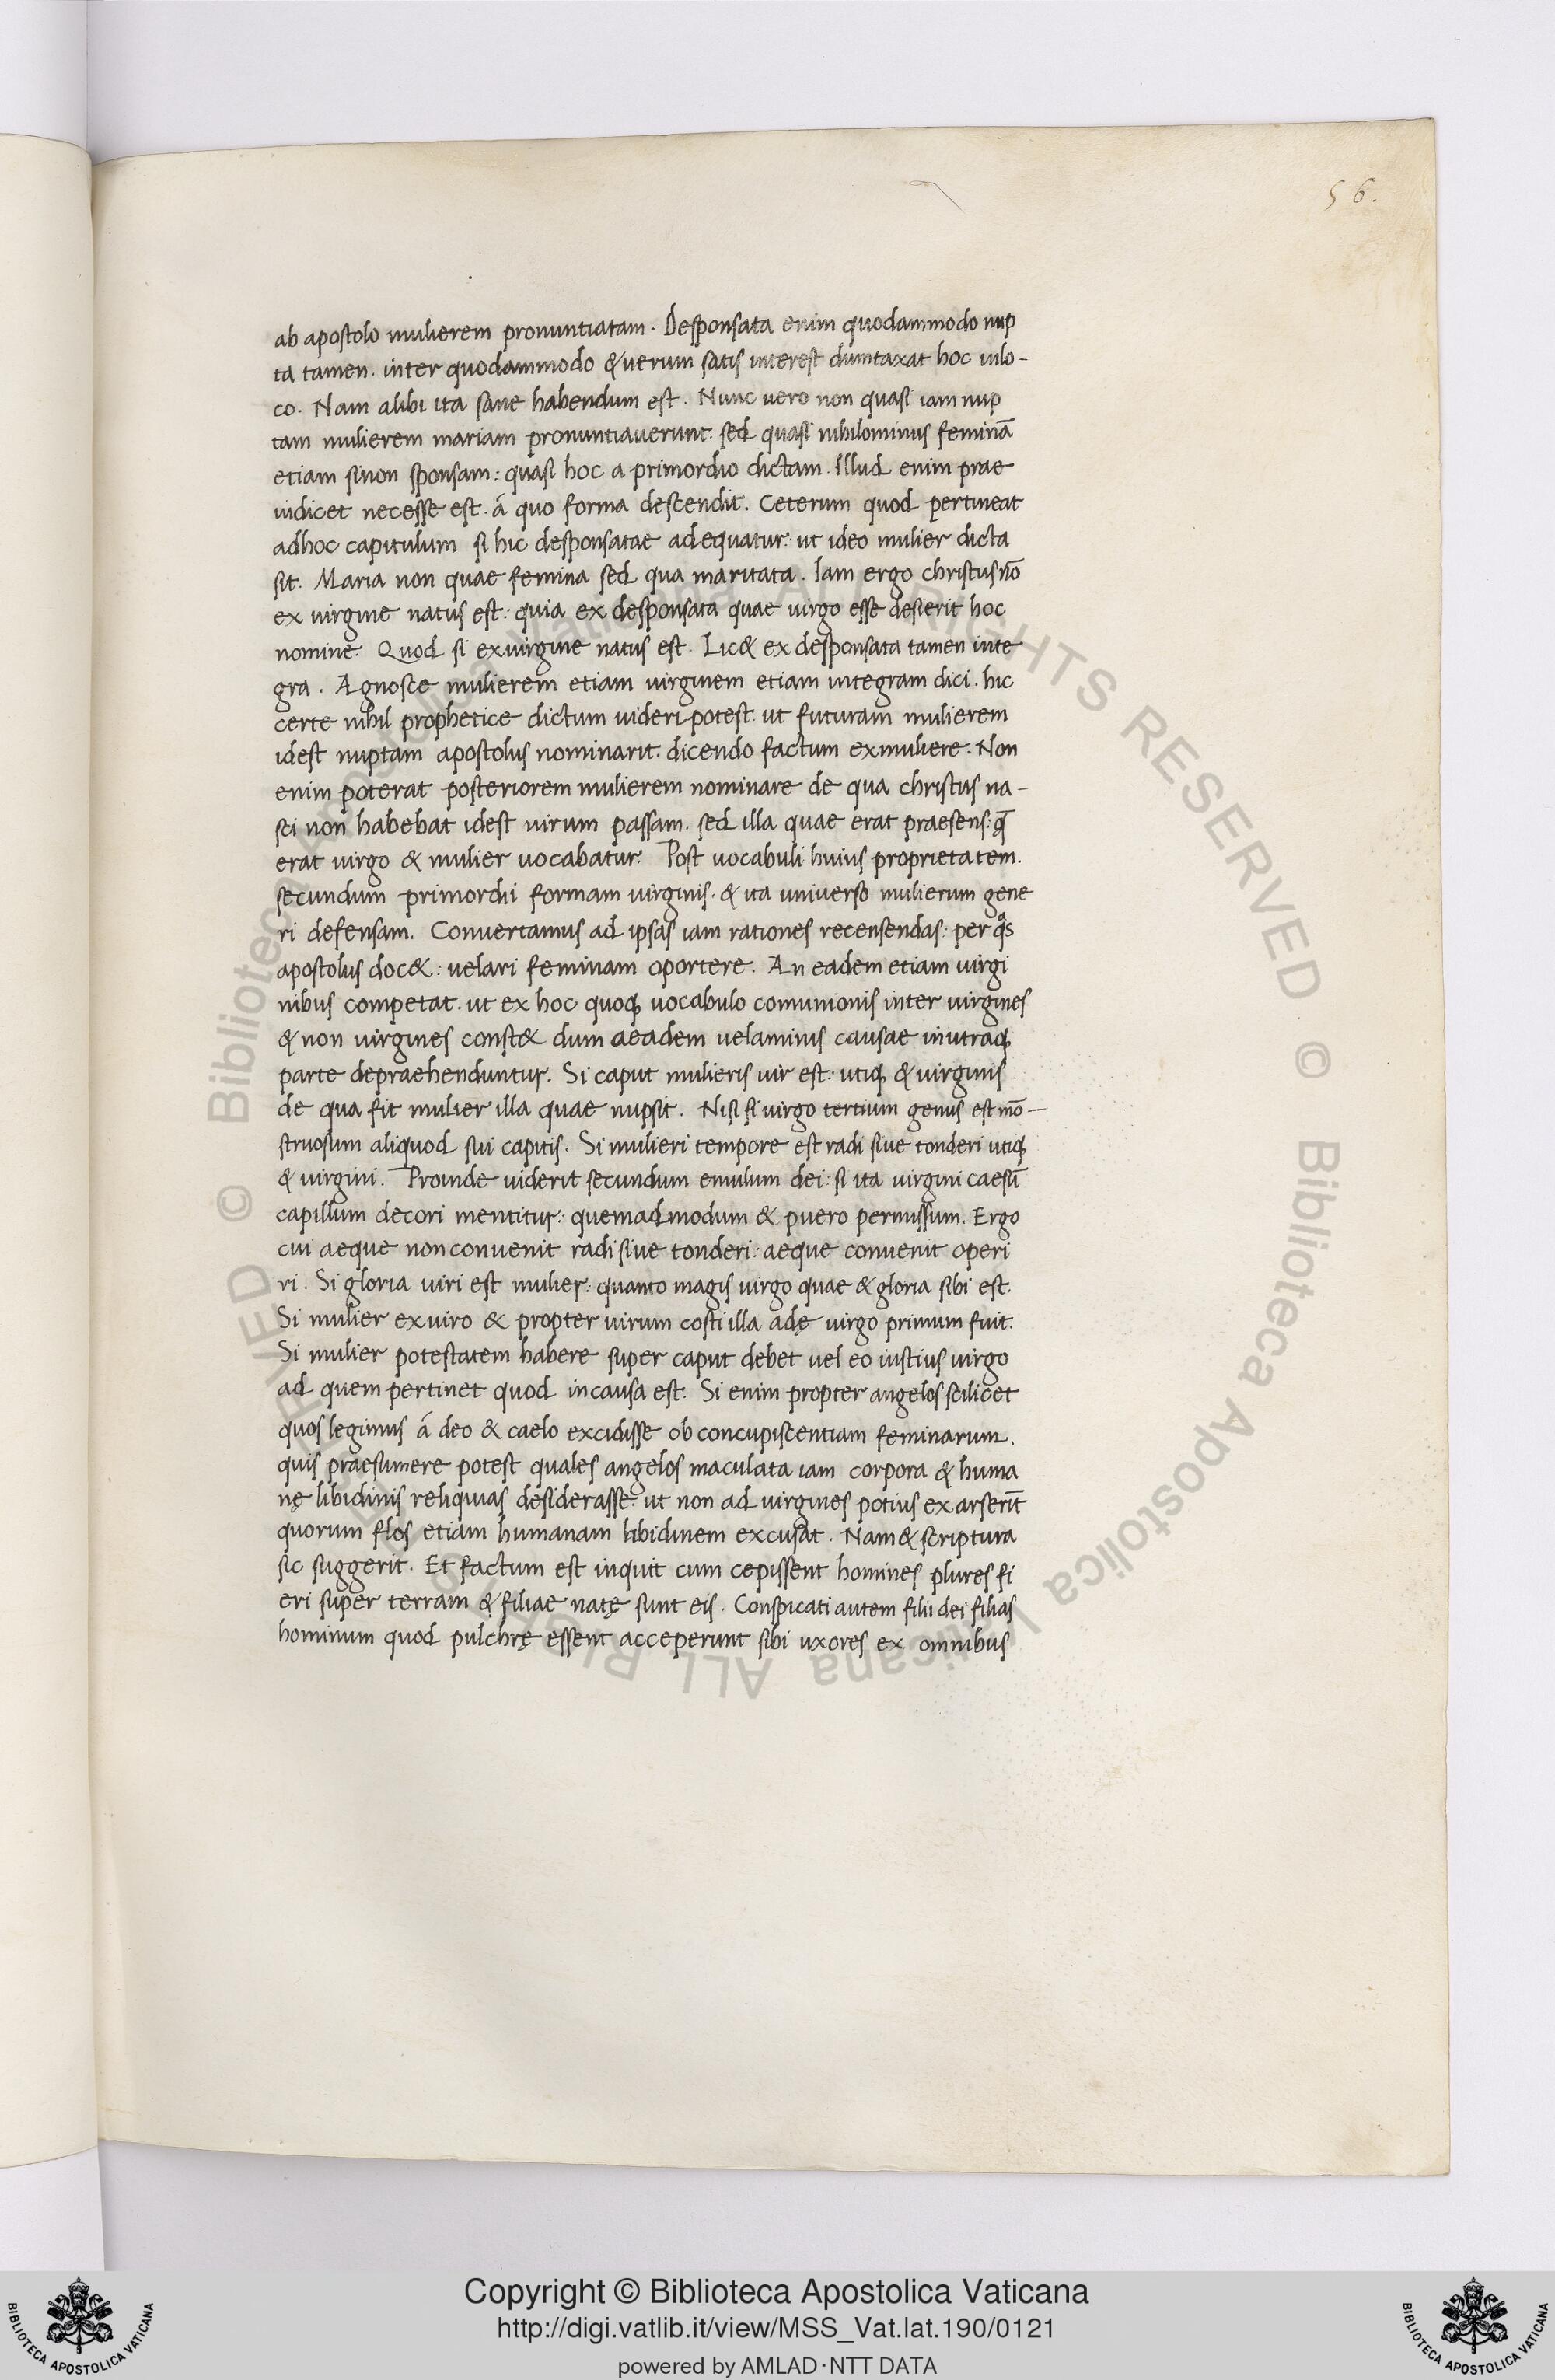 56.
ab apostolo mulierem pronuntiatam. Desponsata enim quodammodo nup
ta tamen. inter quodammodo & uerum satis interest dumtaxat hoc inlo-
co. Nam alibi ita sane habendum est. Nunc uero non quasi iam nup
tam mulierem mariam pronuntiauerunt: sed quasi nihilominus feminā
etiam sinon sponsam: quasi hoc a primordio dictam. Illud enim prae
iudicet necesse est. á quo forma descendit. Ceterum quod pertineat
adhoc capitulum si hic desponsatae adequatur: ut ideo mulier dicta
sit. Maria non quae femina sed qua maritata. Iam ergo christus nō
ex virgine natus est: quia ex desponsata quae virgo esse desierit hoc
nomine. Quod si ex virgine natus est. Lic& ex desponsata tamen inte
gra. Agnosce mulierem etiam virginem etiam integram dici. hic
certe nihil prophetice dictum uideri potest: ut futuram mulierem
idest nuptam apostolus nominarit: dicendo factum exmuliere. Non
enim poterat posteriorem mulierem nominare de qua christus na-
sci non habebat idest uirum passam. sed illa quae erat praesens: q̄
erat virgo & mulier uocabatur. Post uocabuli huius proprietatem.
secundum primordii formam virginis. & ita universo mulierum gene
ri defensam. Convertamus ad ipsas iam rationes recensendas: per q̊s
apostolus doc&: uelari feminam oportere. An eadem etiam virgi
nibus competat. ut ex hoc quoq; uocabulo comunionis inter virgines
& non virgines const& dum aeadem uelaminis causae inutraq;
parte depraehenduntur. Si caput mulieris uir est: utiq; & virginis
de qua fit mulier illa quae nupsit. Nisi si virgo tertium genus est mō-
struosum aliquod sui capitis. Si mulieri tempore est radi sive tonderi utiq;
& virgini. Proinde uiderit secundum emulum dei: si ita virgini caesū
capillum decori mentitur: quemadmodum & puero permissum. Ergo
cui aeque non convenit radi sive tonderi: aeque convenit operi
ri. Si gloria viri est mulier: quanto magis virgo quae & gloria sibi est.
Si mulier ex viro & propter uirum costi illa adę virgo primum fuit.
Si mulier potestatem habere super caput debet uel eo iustius virgo
ad quem pertinet quod incausa est. Si enim propter angelos scilicet
quos legimus á deo & caelo excidisse ob concupiscentiam feminarum.
quis praesumere potest quales angelos maculata iam corpora & huma
nę libidinis reliquias desiderasse: ut non ad virgines potius exarserīt
quorum flos etiam humanam libidinem excusat. Nam & scriptura
sic suggerit. Et factum est inquit cum cepissent homines plures fi
eri super terram & filiae natę sunt eis. Conspicati autem filii dei filias
hominum quod pulchrę essent acceperunt sibi uxores ex omnibus
Copyright © Biblioteca Apostolica Vaticana
http://digi.vatlib.it/view/MSS_Vat.lat.190/0121
powered by AMLAD·NTT DATA
BIBLIOTECA APOSTOLICA VATICANA
BIBLIOTECA APOSTOLICA VATICANA
© Biblioteca Apostolica Vaticana ALL RIGHTS RESERVED © Biblioteca Apostolica Vaticana ALL RIGHTS RESERVED